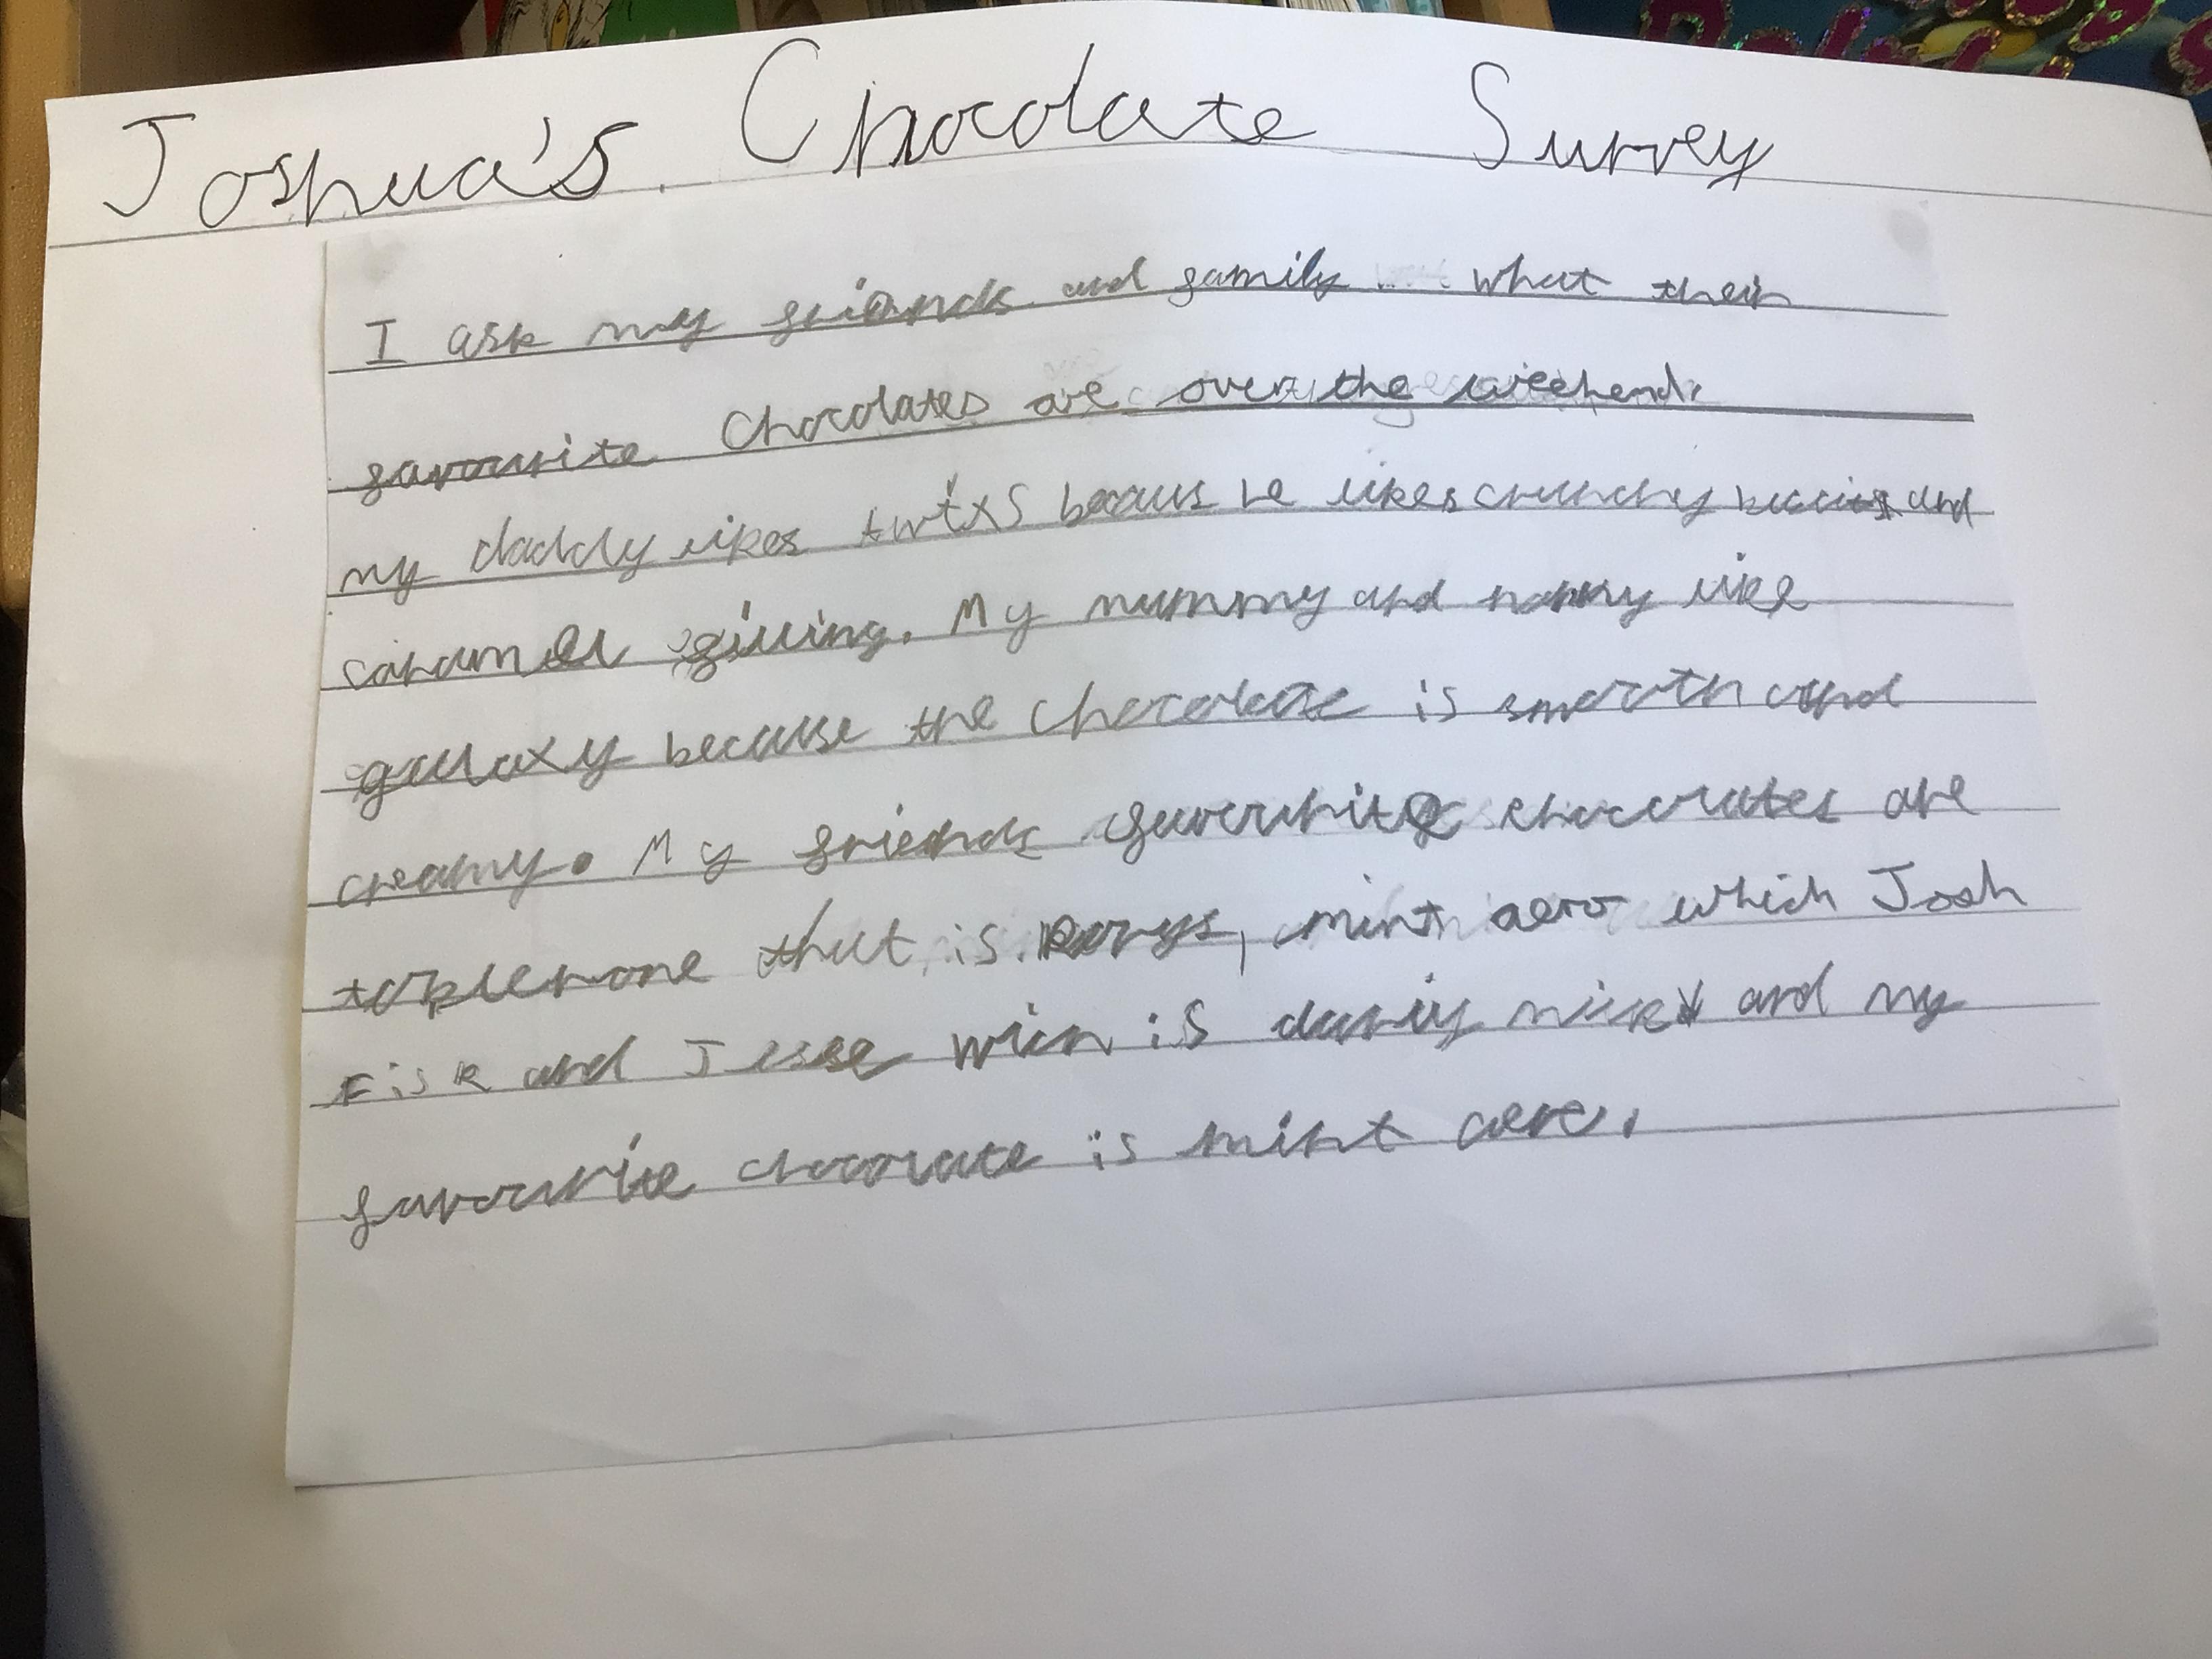 Joshua's Chocolate Survey
I ask my friends and family what their
favourite Chocolates are over the weekend.
my daddy likes twixs becaus he likes crunchy and
caramel filling. My mummy and nanny like
galaxy because the chocolate is smooth and
creamy. My friends favourite chocolates are
toblerone that is Rorys, mint aero which Josh
Fisk and Jesse wich is dairy milk and my
favourite chocolate is mint aero.